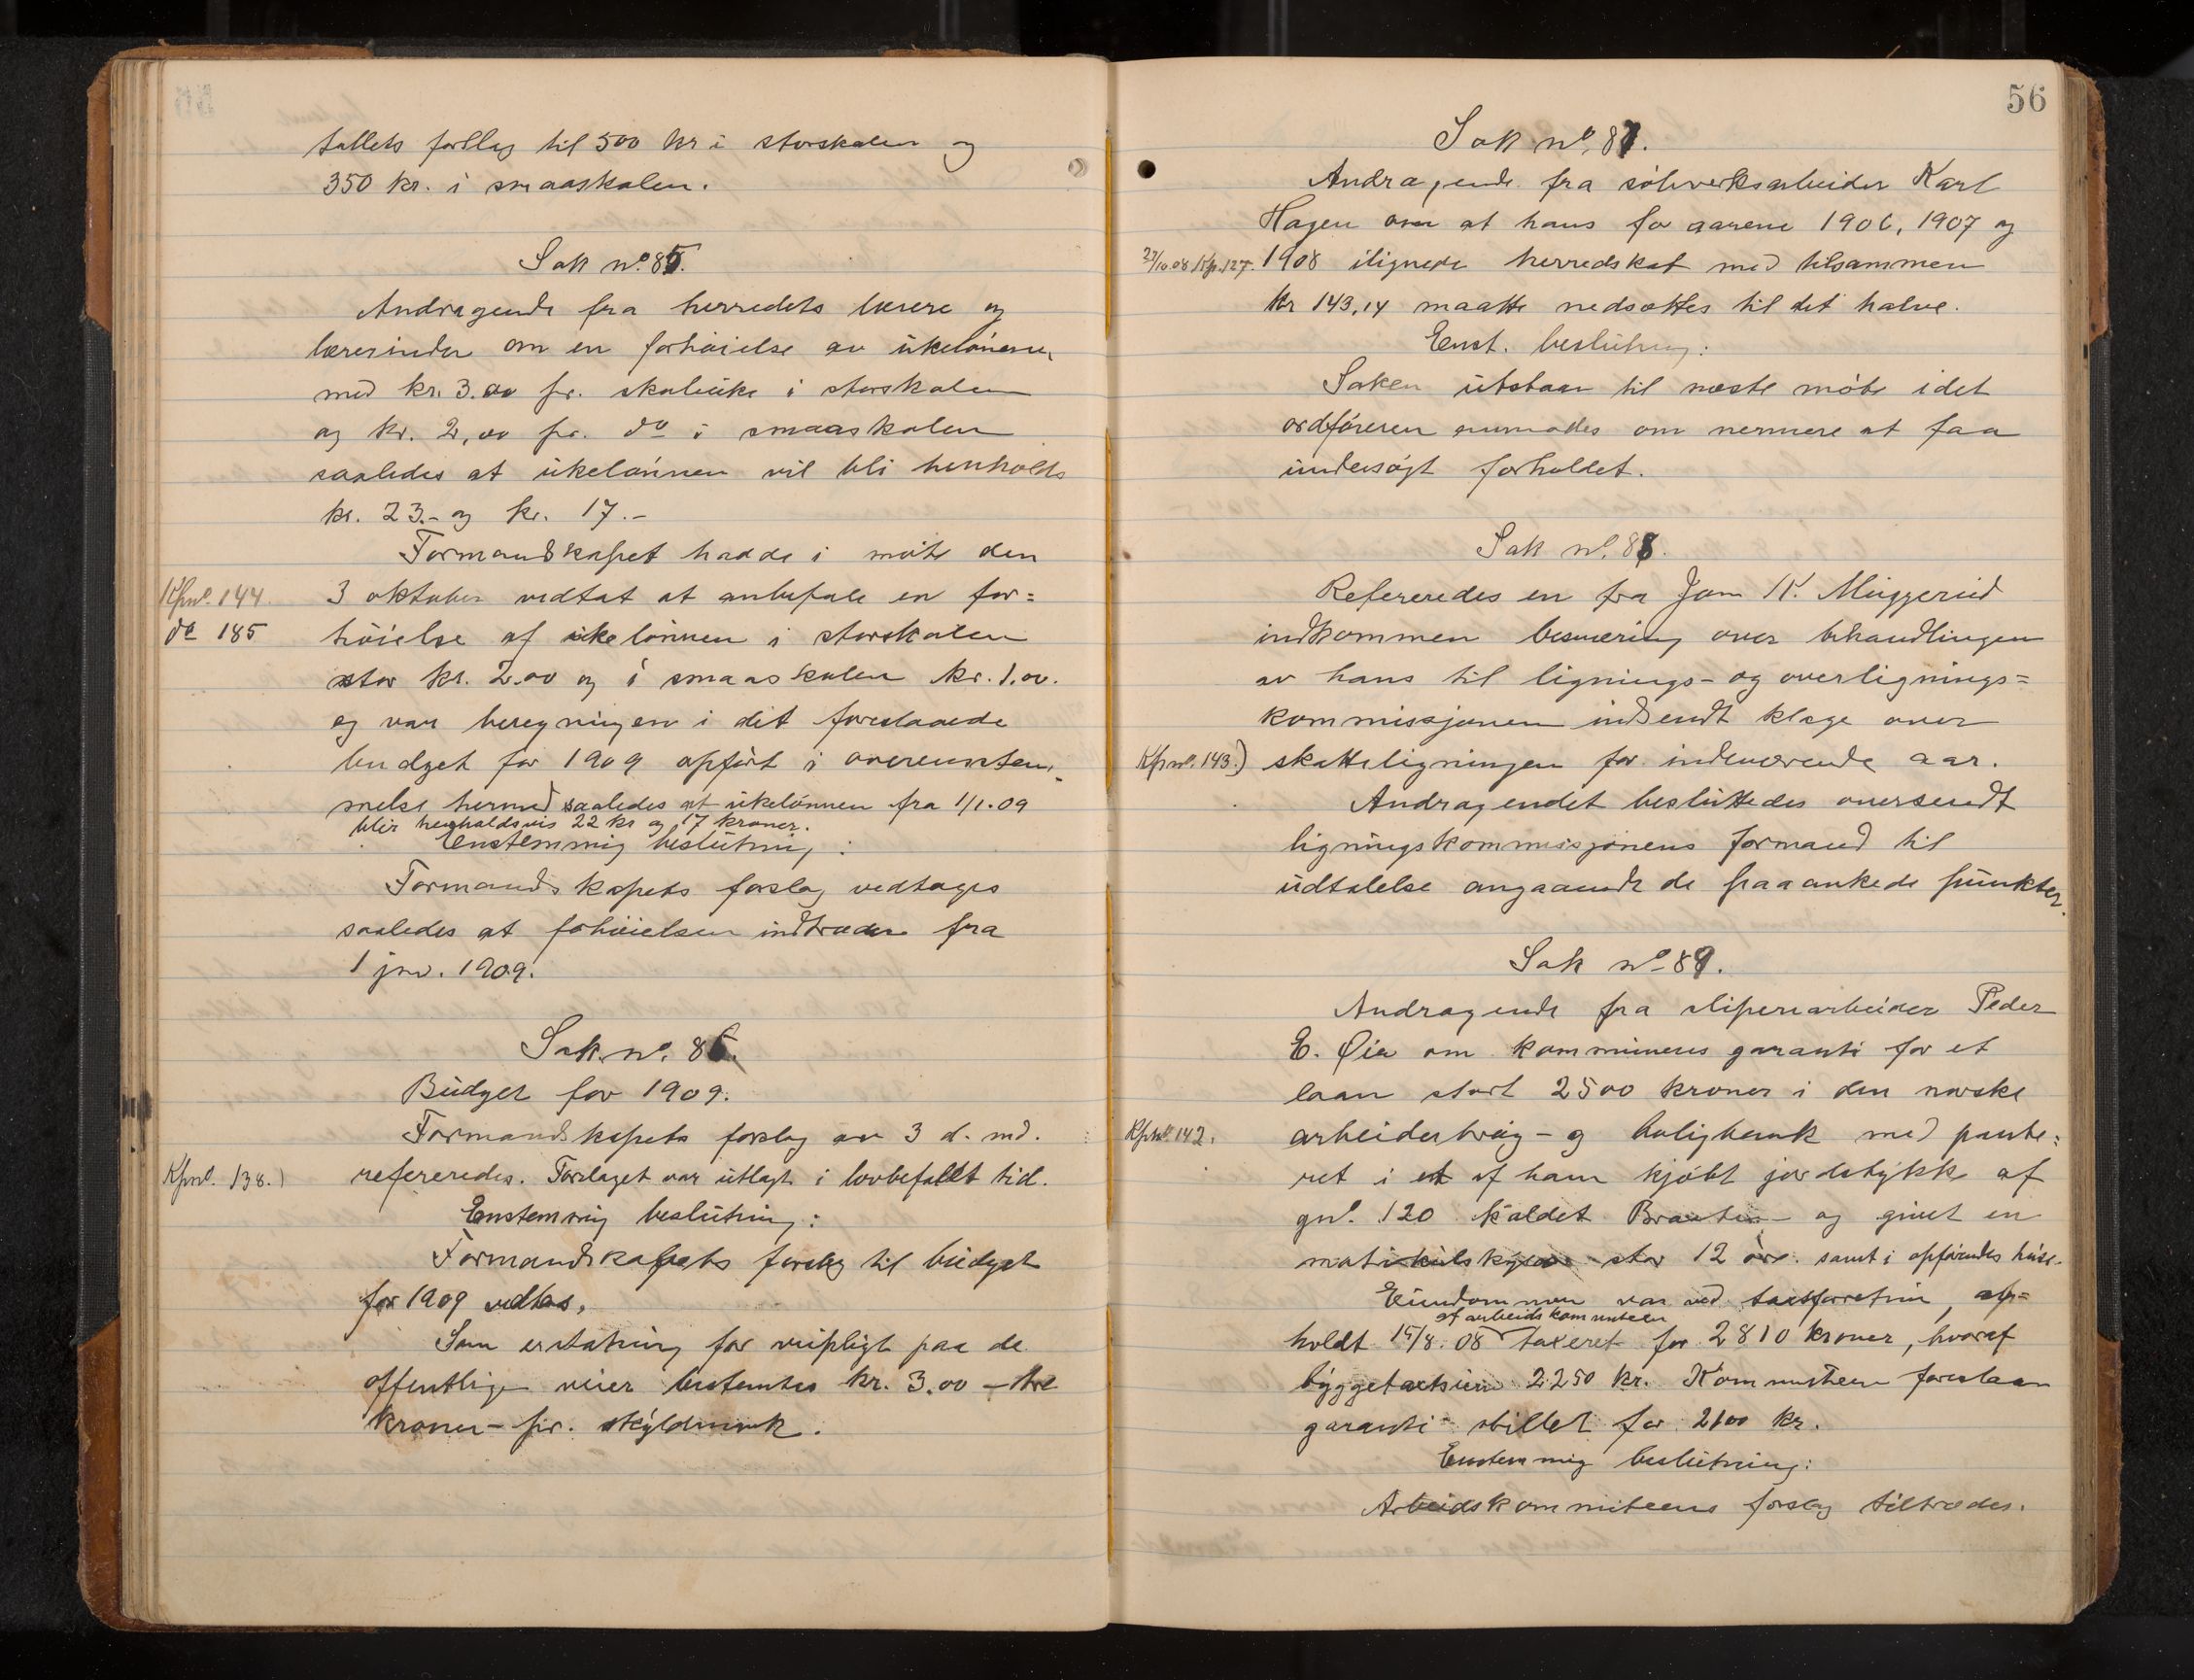 tallets forslag til 500 kr i storskolen og
350 kr. i smaaskolen.
Sak no. 85.
Andragende fra herredets lærere og
lærerinder om en forhøielse av ukelønnen
med kr. 3.00 pr. skoleuke i storskolen
og kr. 2,00 pr. do i smaaskolen
saaledes at ukelønnen vil bli henholds
kr. 23.- og kr. 17.-
Formandskapet hadde i møte den
Kpno. 144.
3 oktober vedtat at anbefale en for=
do 185
høielse af ukelønnen i storskolen
stor kr. 2.00 og i smaaskolen kr. 1.00.
og var beregningen i det foreslaaede
budget for 1909 opført i overensstem-
melse hermed saaledes at ukelønnen fra 1/1.09
blir henholdsvis 22 kr og 17 kroner.
Enstemmig beslutning:
Formandskapets forslag vedtages
saaledes at forhøielsen indtræder fra
1 jan. 1909.
Sak no. 86.
Budget for 1909.
Formandskapets forslag av 3 d. md.
Kpno. 138.)
refereredes. Forslaget var utlagt i lovbefalt tid.
Enstemmig beslutning:
Formandskapets forslag til budget
for 1909 vedtas.
Som erstatning for veipligt paa de
offentlige veier bestemtes kr. 3.00 - tre
kroner - pr. skyldmark.
56
Sak no. 87.
Andragende fra sølvverksarbeider Karl
Hagen om at hans for aarene 1906, 1907 og
27/10.08 Kp. 127.
1908 ilignede herredskat med tilsammen
kr 143,14 maatte nedsættes til det halve.
Enst. beslutning:
Saken utstaar til næste møte idet
ordføreren anmodes om nermere at faa
undersøgt forholdet.
Sak no. 88.
Refereredes en fra Jon K. Muggerud
indkommen besværing over behandlingen
av hans til lignings- og overlignings=
kommissjonen indsendt klage over
Kpno. 143.)
skatteligningen for indeværende aar.
Andragendet besluttedes oversendt
ligningskommissjonens formand til
udtalelse angaaende de paaankede punkter.
Sak no. 89.
Andragende fra sliperiarbeider Peder
E. Øia om kommunens garanti for et
laan stort 2500 kroner i den norske
Kpno. 142.
arbeiderbrug- og boligbank med pante=
ret i et af ham kjøbt jordstykke af
gno. 120 kaldet Braaten - og givet en
matrikulskyld stor 12 øre. samt i opførendes huse.
Eiendommen var ved taxtforretning, op=
af arbeidskommiteen
holdt 15/8. 08 taxeret for 2810 kroner, hvoraf
byggetaxtsum 2250 kr. Kommiteen foreslaar
garanti stillet for 2100 kr.
Enstemmig beslutning:
Arbeidskommiteens forslag tiltrædes.